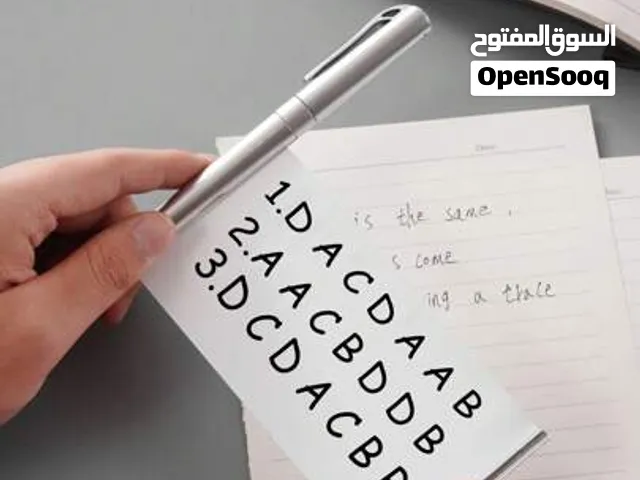 السوق المفتوح
OpenSooq
is the same,
s come
ing a trace
1.D A C D A A B
2.A A C B D D B
3.D C D A C B